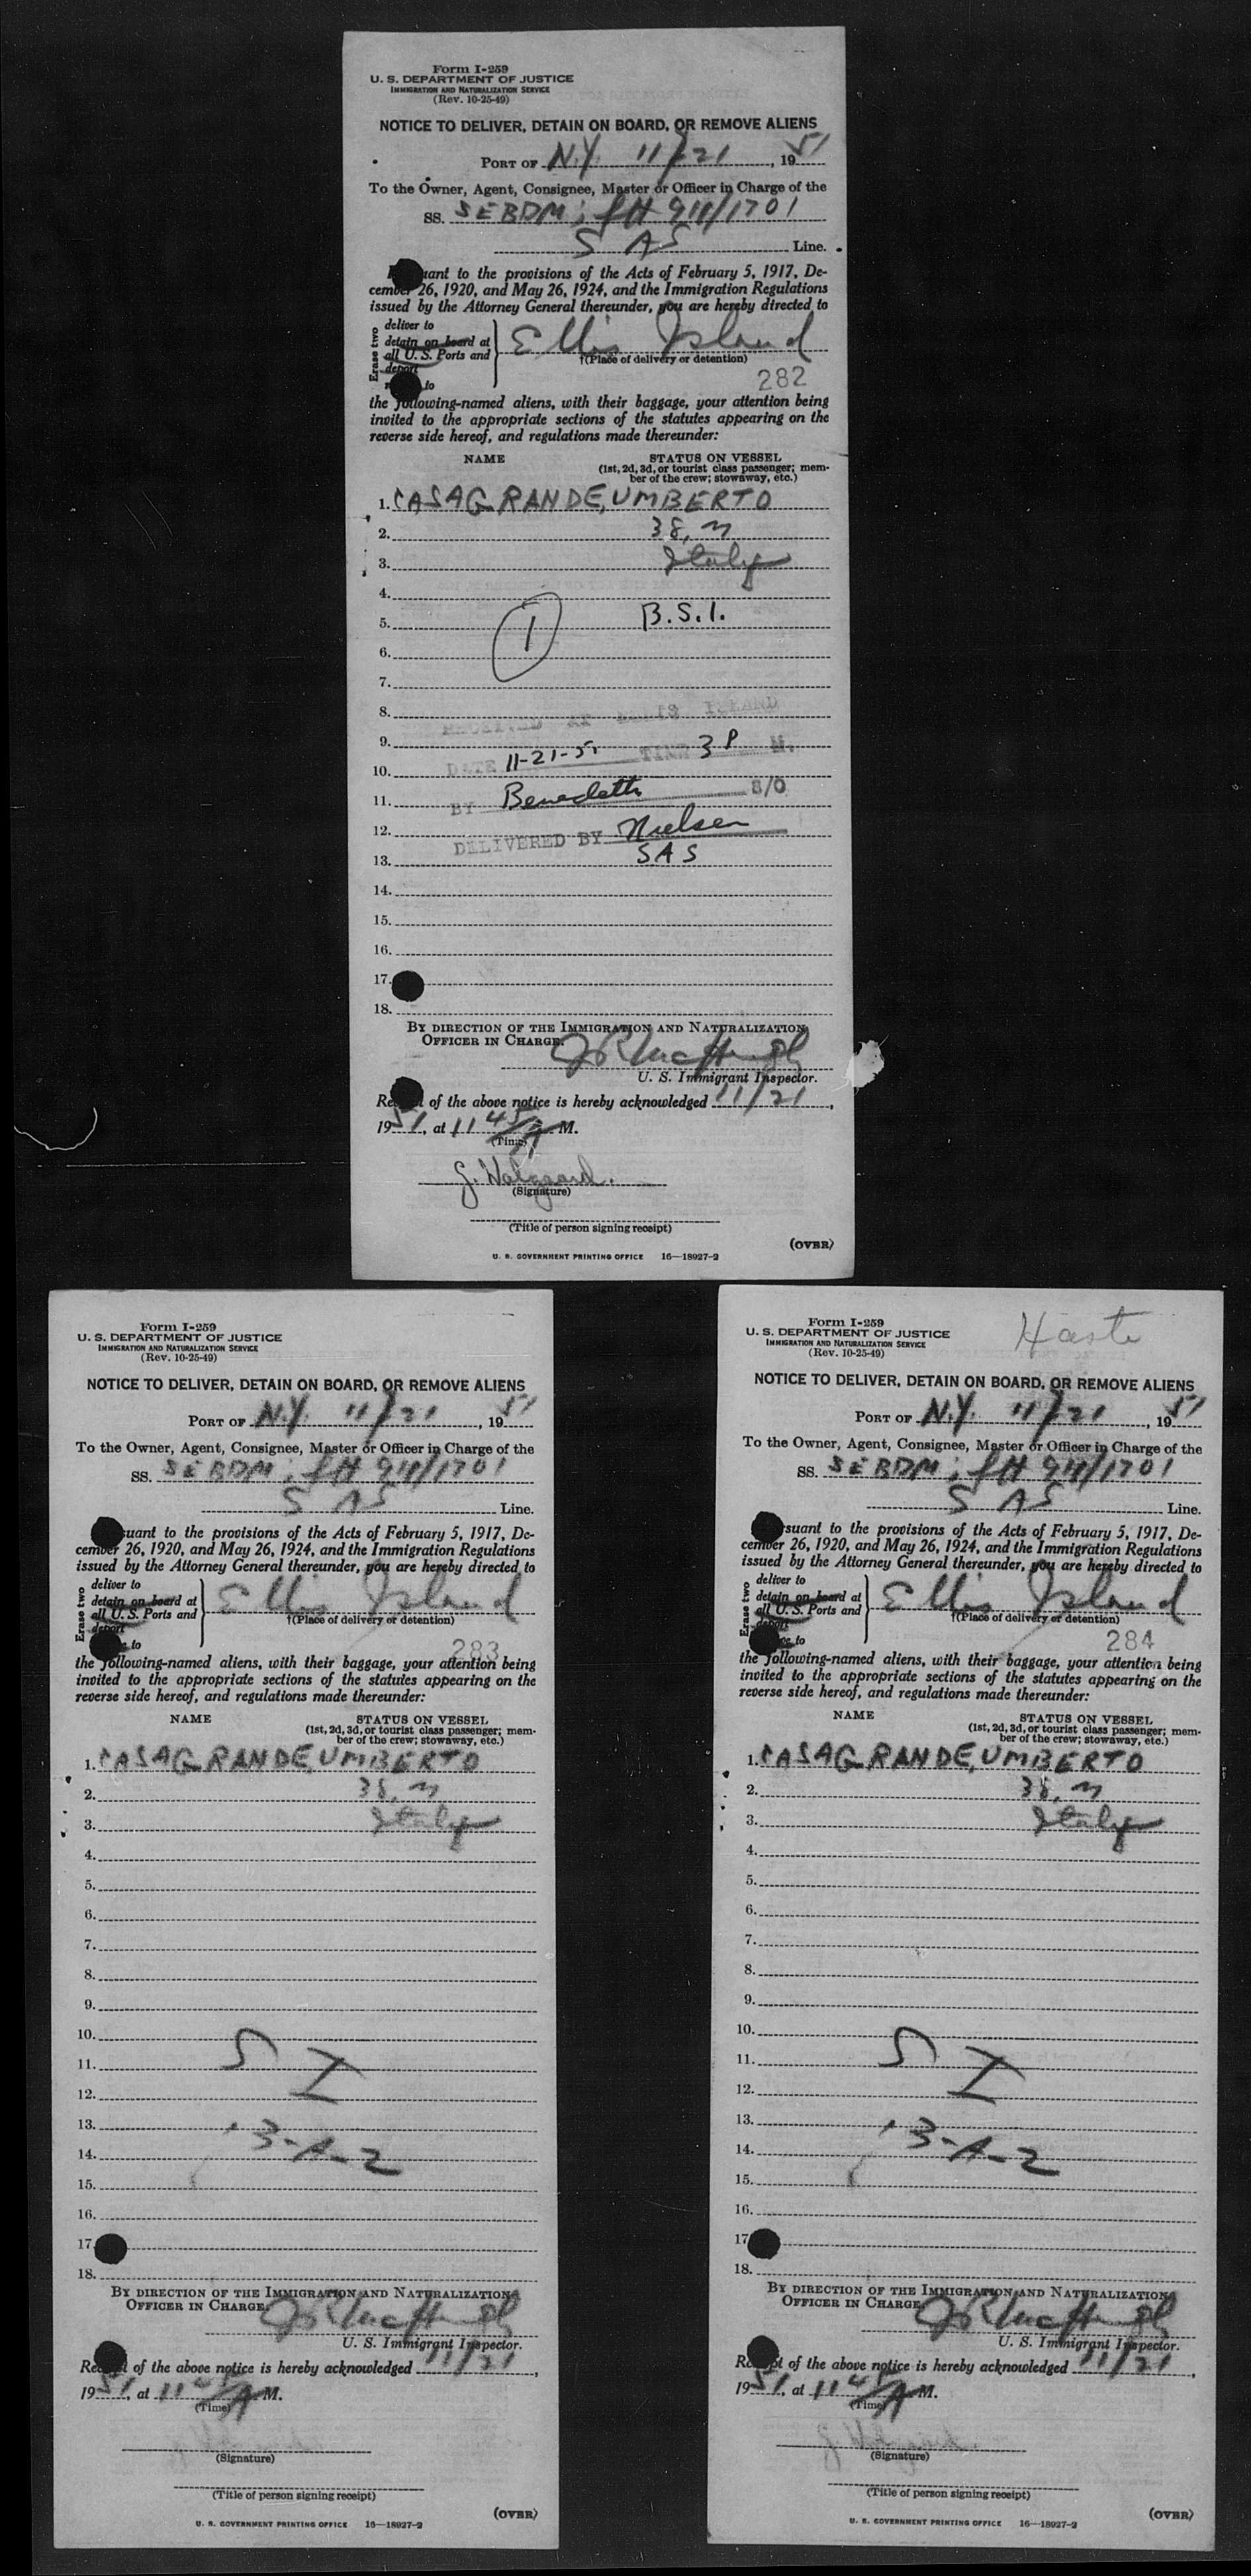 Form I-259
U. S. DEPARTMENT OF JUSTICE
IMMIGRATION AND NATURALIZATION SERVICE
(Rev. 10-25-49)
NOTICE TO DELIVER, DETAIN ON BOARD, OR REMOVE ALIENS
PORT OF N.Y. 11/21, 1951
To the Owner, Agent, Consignee, Master or Officer in Charge of the
SS. SEBDM; 911/1701
SAS Line.
uant to the provisions of the Acts of February 5, 1917, De-
cember 26, 1920, and May 26, 1924, and the Immigration Regulations
issued by the Attorney General thereunder, you are hereby directed to
Erase two
deliver to
detain on board at
all U. S. Ports and
deport
to
Ellis Island
†(Place of delivery or detention)
282
the following-named aliens, with their baggage, your attention being
invited to the appropriate sections of the statutes appearing on the
reverse side hereof, and regulations made thereunder:
NAME STATUS ON VESSEL
(1st, 2d, 3d, or tourist class passenger; mem-
ber of the crew; stowaway, etc.)
1. CASAGRANDE, UMBERTO
2. 38, M
3. Italy
4.
5. B.S.I.
1
6.
7.
8. RECEIVED AT ELLIS ISLAND
9.
DATE 11-21-51 TIME 3 P M.
10.
11. BY Benedetti S/O
12.
DELIVERED BY Nielsen
13. SAS
14.
15.
16.
17.
18.
BY DIRECTION OF THE IMMIGRATION AND NATURALIZATION
OFFICER IN CHARGE.
U. S. Immigrant Inspector.
Re t of the above notice is hereby acknowledged 11/21,
1951, at 11 45/A M.
(Time)
(Signature)
(Title of person signing receipt)
(OVER)
U. S. GOVERNMENT PRINTING OFFICE 16—18927-2
Form I-259
U. S. DEPARTMENT OF JUSTICE
IMMIGRATION AND NATURALIZATION SERVICE
(Rev. 10-25-49)
NOTICE TO DELIVER, DETAIN ON BOARD, OR REMOVE ALIENS
PORT OF N.Y. 11/21, 1951
To the Owner, Agent, Consignee, Master or Officer in Charge of the
SS. SEBDM; 911/1701
SAS Line.
suant to the provisions of the Acts of February 5, 1917, De-
cember 26, 1920, and May 26, 1924, and the Immigration Regulations
issued by the Attorney General thereunder, you are hereby directed to
Erase two
deliver to
detain on board at
all U. S. Ports and
deport
to
Ellis Island
†(Place of delivery or detention)
283
the following-named aliens, with their baggage, your attention being
invited to the appropriate sections of the statutes appearing on the
reverse side hereof, and regulations made thereunder:
NAME STATUS ON VESSEL
(1st, 2d, 3d, or tourist class passenger; mem-
ber of the crew; stowaway, etc.)
1. CASAGRANDE, UMBERTO
2. 38, M
3. Italy
4.
5.
6.
7.
8.
9.
10.
11. S I
12.
13.
14. 3-A-2
15.
16.
17.
18.
BY DIRECTION OF THE IMMIGRATION AND NATURALIZATION
OFFICER IN CHARGE.
U. S. Immigrant Inspector.
Re t of the above notice is hereby acknowledged 11/21,
1951, at 11 45/A M.
(Time)
(Signature)
(Title of person signing receipt)
(OVER)
U. S. GOVERNMENT PRINTING OFFICE 16—18927-2
Form I-259
Haste
U. S. DEPARTMENT OF JUSTICE
IMMIGRATION AND NATURALIZATION SERVICE
(Rev. 10-25-49)
NOTICE TO DELIVER, DETAIN ON BOARD, OR REMOVE ALIENS
PORT OF N.Y. 11/21, 1951
To the Owner, Agent, Consignee, Master or Officer in Charge of the
SS. SEBDM; 911/1701
SAS Line.
rsuant to the provisions of the Acts of February 5, 1917, De-
cember 26, 1920, and May 26, 1924, and the Immigration Regulations
issued by the Attorney General thereunder, you are hereby directed to
Erase two
deliver to
detain on board at
all U. S. Ports and
deport
to
Ellis Island
†(Place of delivery or detention)
284
the following-named aliens, with their baggage, your attention being
invited to the appropriate sections of the statutes appearing on the
reverse side hereof, and regulations made thereunder:
NAME STATUS ON VESSEL
(1st, 2d, 3d, or tourist class passenger; mem-
ber of the crew; stowaway, etc.)
1. CASAGRANDE, UMBERTO
2. 38, M
3. Italy
4.
5.
6.
7.
8.
9.
10.
11. S I
12.
13.
14. 3-A-2
15.
16.
17
18.
BY DIRECTION OF THE IMMIGRATION AND NATURALIZATION
OFFICER IN CHARGE.
U. S. Immigrant Inspector.
Re pt of the above notice is hereby acknowledged 11/21,
1951, at 11 45/A M.
(Time)
(Signature)
(Title of person signing receipt)
(OVER)
U. S. GOVERNMENT PRINTING OFFICE 16—18927-2